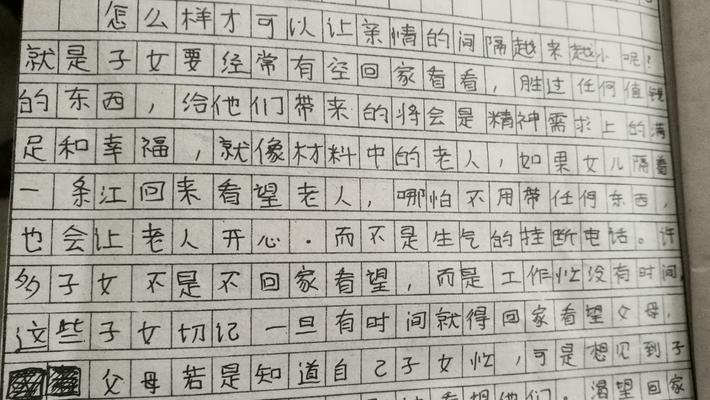 怎么样才可以让亲情的间隔越来越小呢！
就是子女要经常有空回家看看，胜过任何值钱
的东西，给他们带来的将会是精神需求上的满
足和幸福，就像材料中的老人，如果女儿隔着
一条江回来看望老人，哪怕不用带任何东西，
也会让老人开心．而不是生气的挂断电话。许
多子女不是不回家看望，而是工作忙没有时间，
这些子女切记一旦有时间就得回家看望父母，
父母若是知道自己子女忙，可是想见到子
看望他们。渴望回家